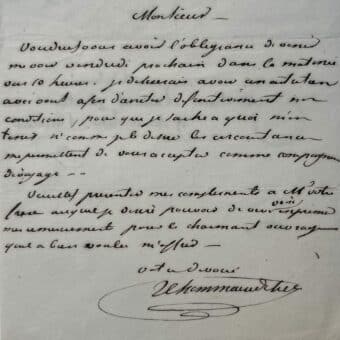 Monsieur –
Voudrez vous avoir l'obligeance de venir
me voir vendredi prochain dans la matinée
vers 10 heures. je désirerais avoir un
avec vous afin d'arrêter définitivement nos
conditions, pour que je sache a quoi m'en
tenir si comme je le désire les circonstances
me permettent de vous accepter comme compagnon
de voyage – –
Veuillez présenter mes complements a Mr votre
frère auquel je désire pouvoir de vive voix exprimer
mes remerciements pour le charmant ouvrage
qu'il a bien voulu m'offrir –
votre dévoué